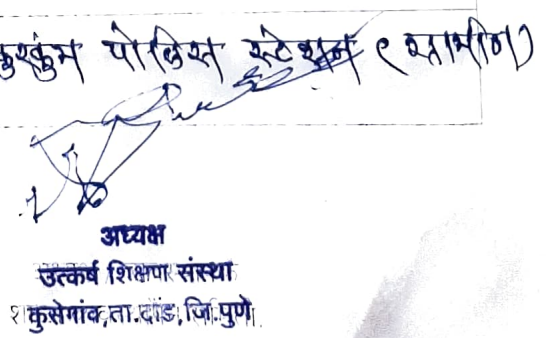 कुरकुंभ पोलिस स्टेशन (ग्रामीण)
अध्यक्ष
उत्कर्ष शिक्षण संस्था
कुसेगांव, ता.दौंड, जि.पुणे.